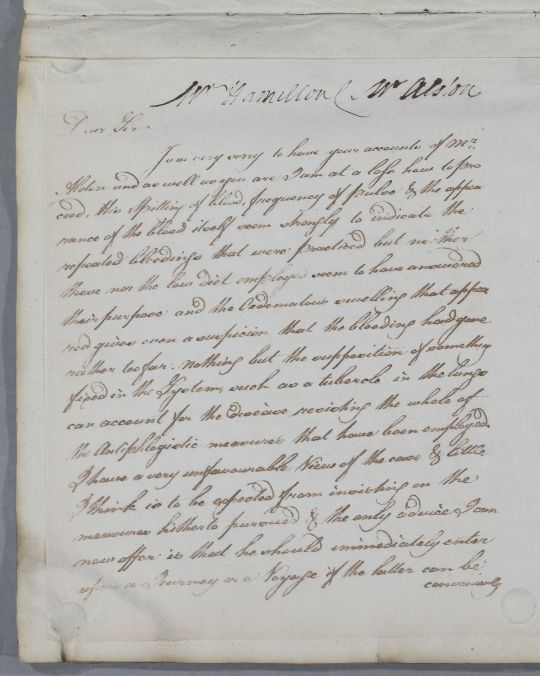 Mr Hamilton Mr Alston
Dear Sir
I am very sorry to have your accounts of Mr
Alston and as well as you are I am at a loss how to pro
ceed. His spitting of blood, frequency of pulse & the appea
rance of the blood itself seem strongly to indicate the
repeated bleedings that were practised but neither
these nor the low diet employed seem to have answered
their purpose and the Oedematous swelling that appea
red gives even a suspicion that the bleeding had gone
rather too far. nothing but the supposition of something
fixed in the System, such as a tubercle in the lungs
can account for the disease resisting the whole of
the Antiphlogistic measures that have been employed.
I have a very unfavourable View of the case & little
I think is to be expected from insisting on the
measures hitherto pursued & the only advice I can
now offer is that he should immediately enter
upon a Journey or a Voyage if the latter can be
conveniently